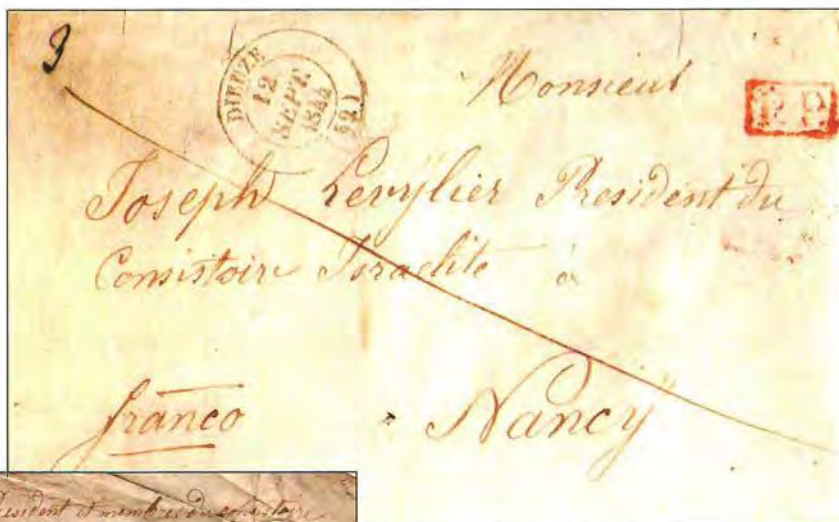 3
DIEUZE
12
SEPT.
1844
(52)
Monsieur
P.P.
Joseph Levÿlier President du
Consistoire Israelite à
franco
Nancÿ
President et membres du consistoire